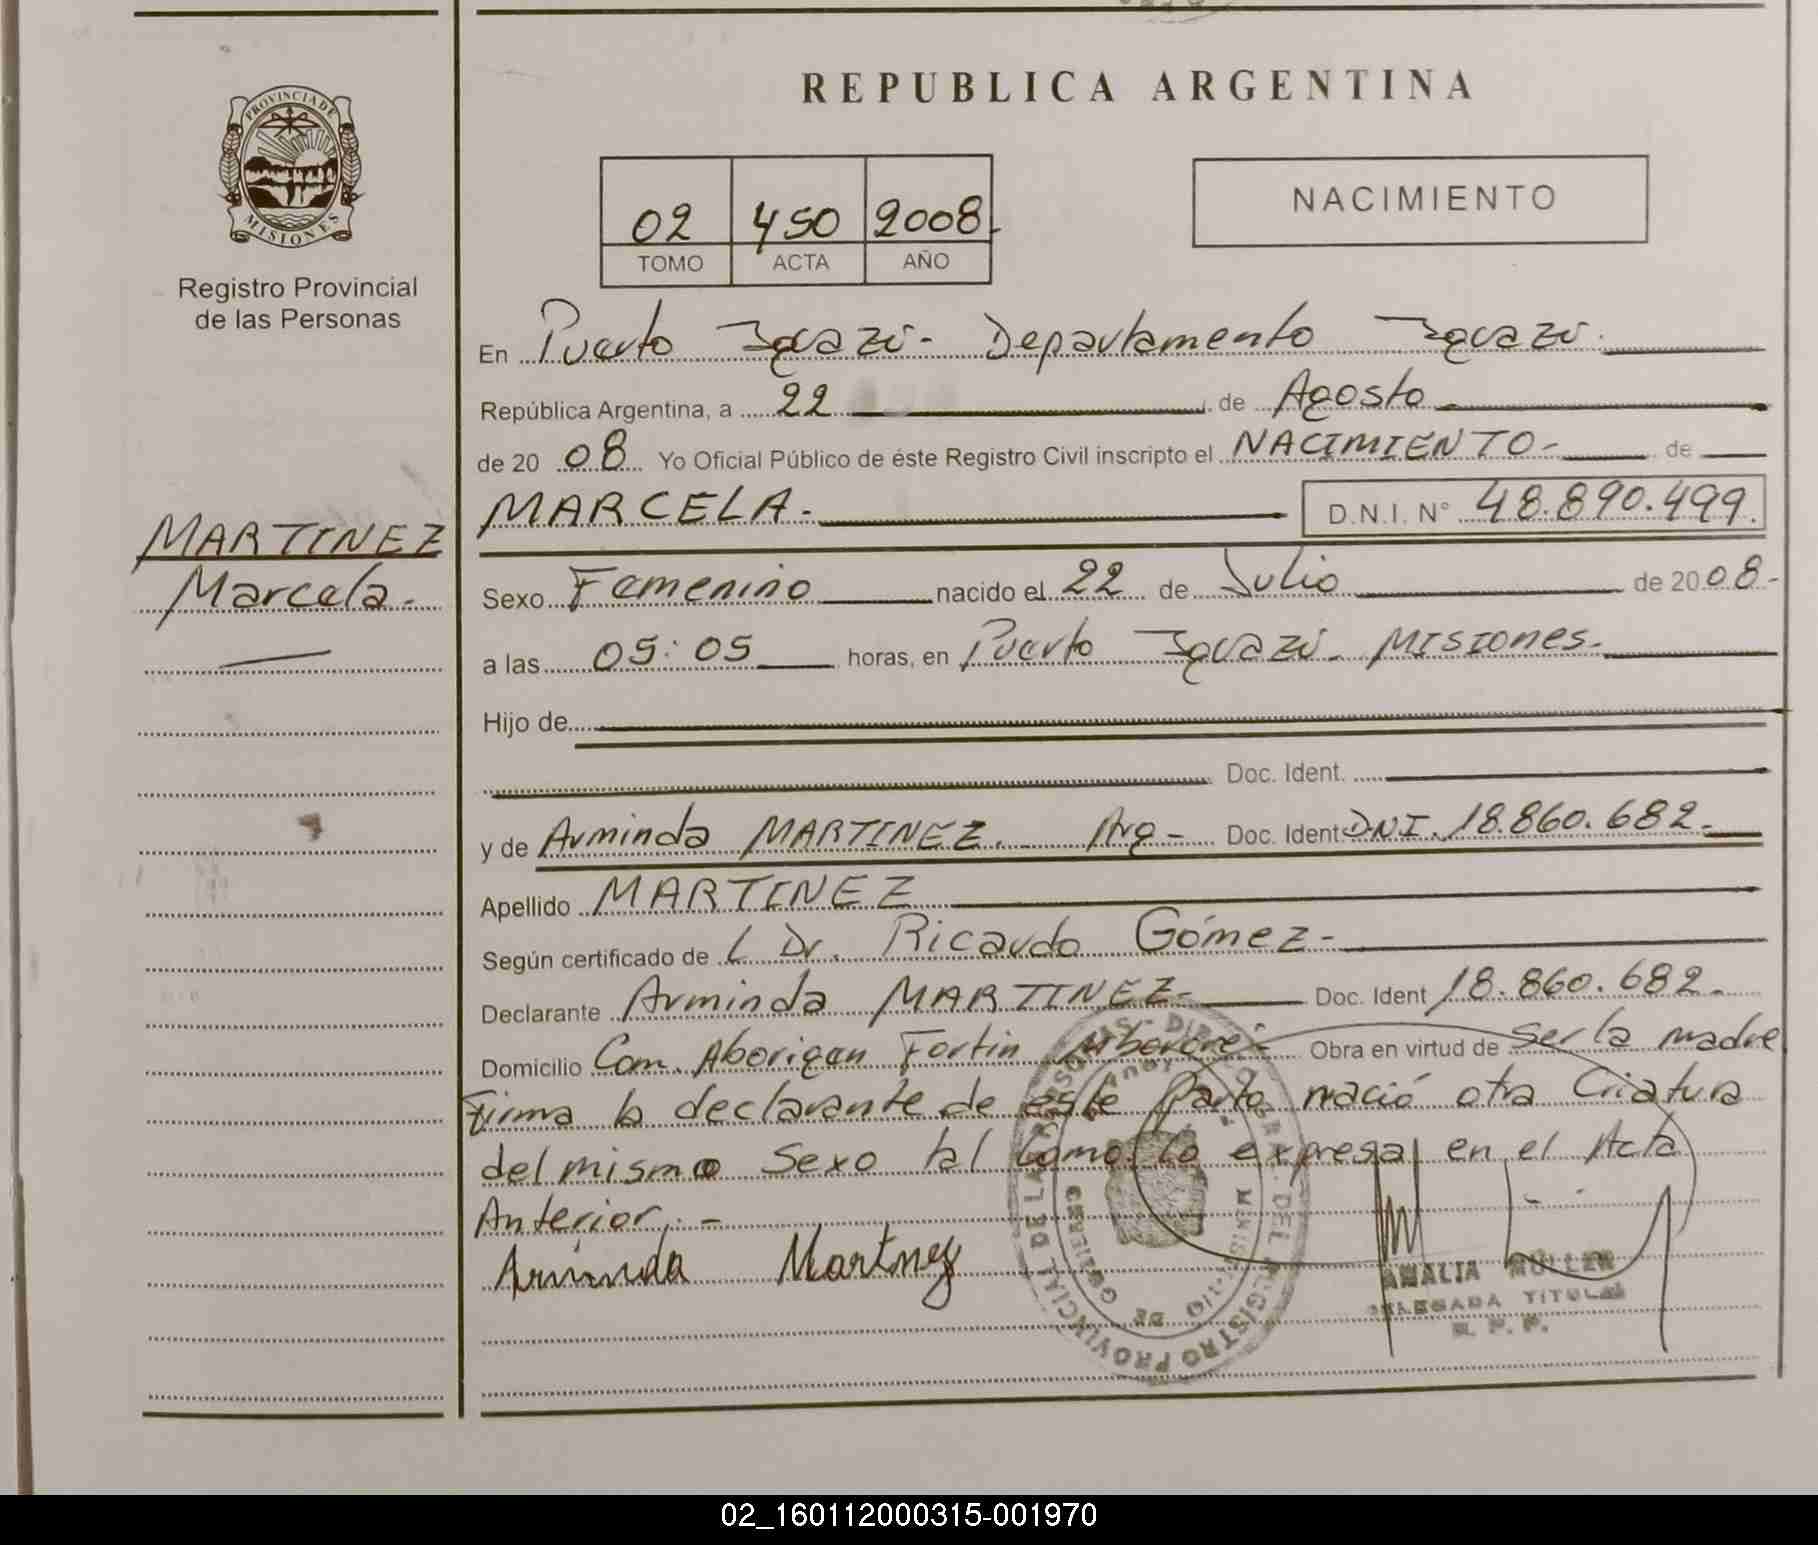 REPUBLICA ARGENTINA
PROVINCIA DE
MISIONES
Registro Provincial
de las Personas
02 450 2008
TOMO ACTA AÑO
NACIMIENTO
En Puerto Iguazú - Departamento Iguazú.
República Argentina, a 22 de Agosto
de 20 08 Yo Oficial Público de éste Registro Civil inscripto el NACIMIENTO - de
MARCELA. D.N.I. N° 48.890.499.
MARTINEZ
Marcela.
Sexo Femenino nacido el 22 de Julio de 20 08 -
a las 05:05 horas, en Puerto Iguazú - MISIONES.
Hijo de
Doc. Ident.
y de Arminda MARTINEZ. Arg - Doc. Ident D.N.I. 18.860.682.-
Apellido MARTINEZ
Según certificado de L Dr. Ricardo Gómez -
Declarante Arminda MARTINEZ- Doc. Ident 18.860.682.
Domicilio Com. Aborigen Fortin Mbororé - Obra en virtud de Ser la madre
Firma la declarante de este Parto nació otra Criatura
del mismo Sexo tal Como lo expresa en el Acta
Anterior. -
Arminda Martinez
AMALIA MULLER
DELEGADA TITULAR
R. P. P.
REGISTRO PROVINCIAL DE LAS PERSONAS
MINISTERIO DE GOBIERNO
02_160112000315-001970